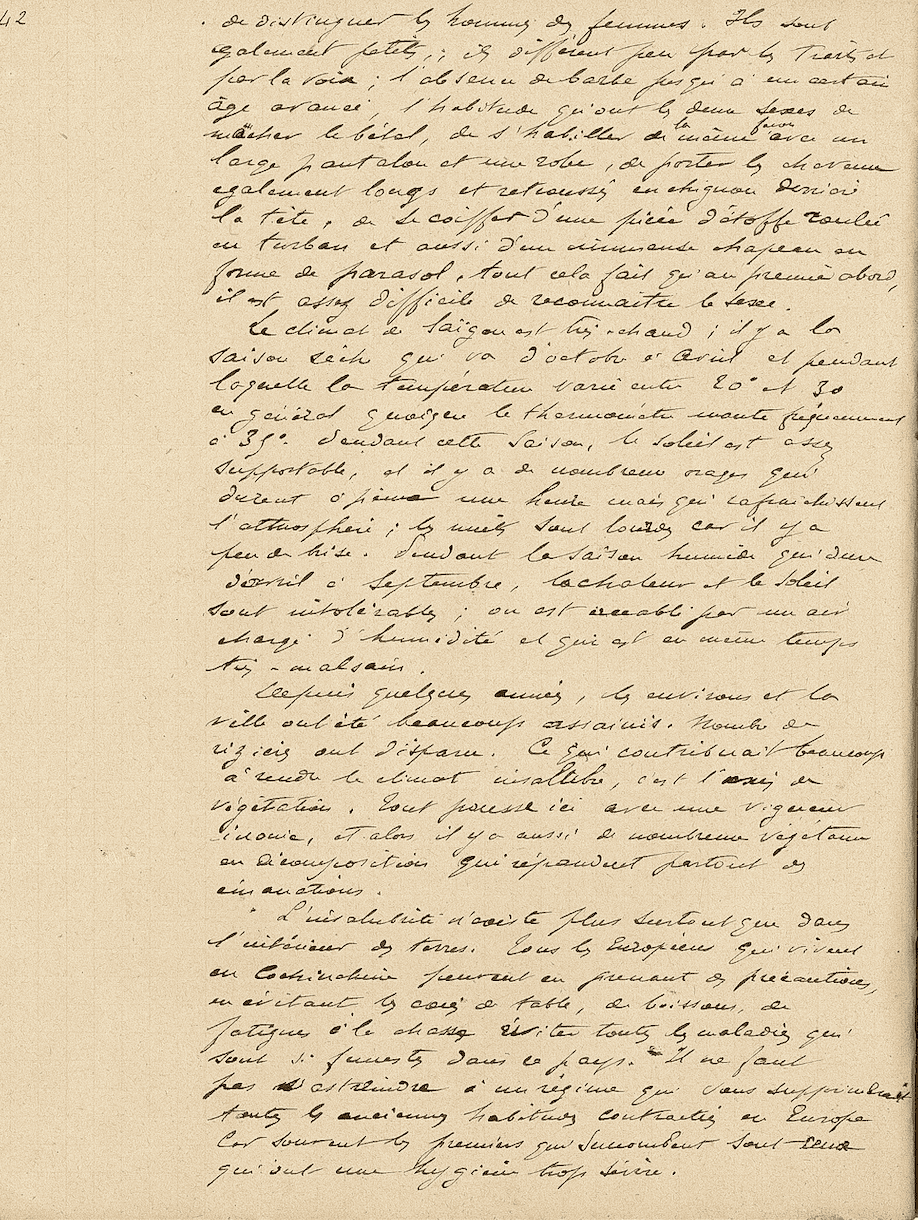 42
de distinguer les hommes des femmes. Ils sont
également petits ; ils diffèrent peu par les traits et
par la voix ; l'absence de barbe jusqu'à un certain
âge avancé, l'habitude qu'ont les deux sexes de
mâcher le bétel, de s'habiller de la même façon avec un
large pantalon et une robe, de porter les cheveux
également longs et retroussés en chignon derrière
la tête, de se coiffer d'une pièce d'étoffe roulée
en turban et aussi d'un immense chapeau en
forme de parasol, tout cela fait qu'au premier abord,
il est assez difficile de reconnaître le sexe.
Le climat de Saïgon est très-chaud ; il y a la
saison sèche qui va d'octobre à Avril et pendant
laquelle la température varie entre 20° et 30
en général quoique le thermomètre monte fréquemment
à 35°. Pendant cette saison, le soleil est assez
supportable, et il y a de nombreux orages qui
durent à peine une heure mais qui rafraichissent
l'atmosphère ; les nuits sont lourdes car il y a
peu de brise. Pendant la saison humide qui dure
d'avril à Septembre, la chaleur et le soleil
sont intolérables ; on est accablé par un air
chargé d'humidité et qui est en même temps
très-malsain.
Depuis quelques années, les environs et la
ville ont été beaucoup assainis. Nombre de
rizières ont disparu. Ce qui contribuait beaucoup
à rendre le climat insalubre, c'est l'excès de
végétation. Tout pousse ici avec une vigueur
inouïe, et alors il y a aussi de nombreux végétaux
en décomposition qui répandent partout des
émanations.
L'insalubrité n'existe plus surtout que dans
l'intérieur des terres. Tous les Européens qui vivent
en Cochinchine peuvent en prenant des précautions,
en évitant les excès de table, de boissons, de
fatigues à la chasse éviter toutes les maladies qui
sont si funestes dans ce pays. Il ne faut
pas s'astreindre à un régime qui vous supprimerait
toutes les anciennes habitudes contractées en Europe
Car souvent les premiers qui succombent sont ceux
qui ont une hygiène trop sévère.